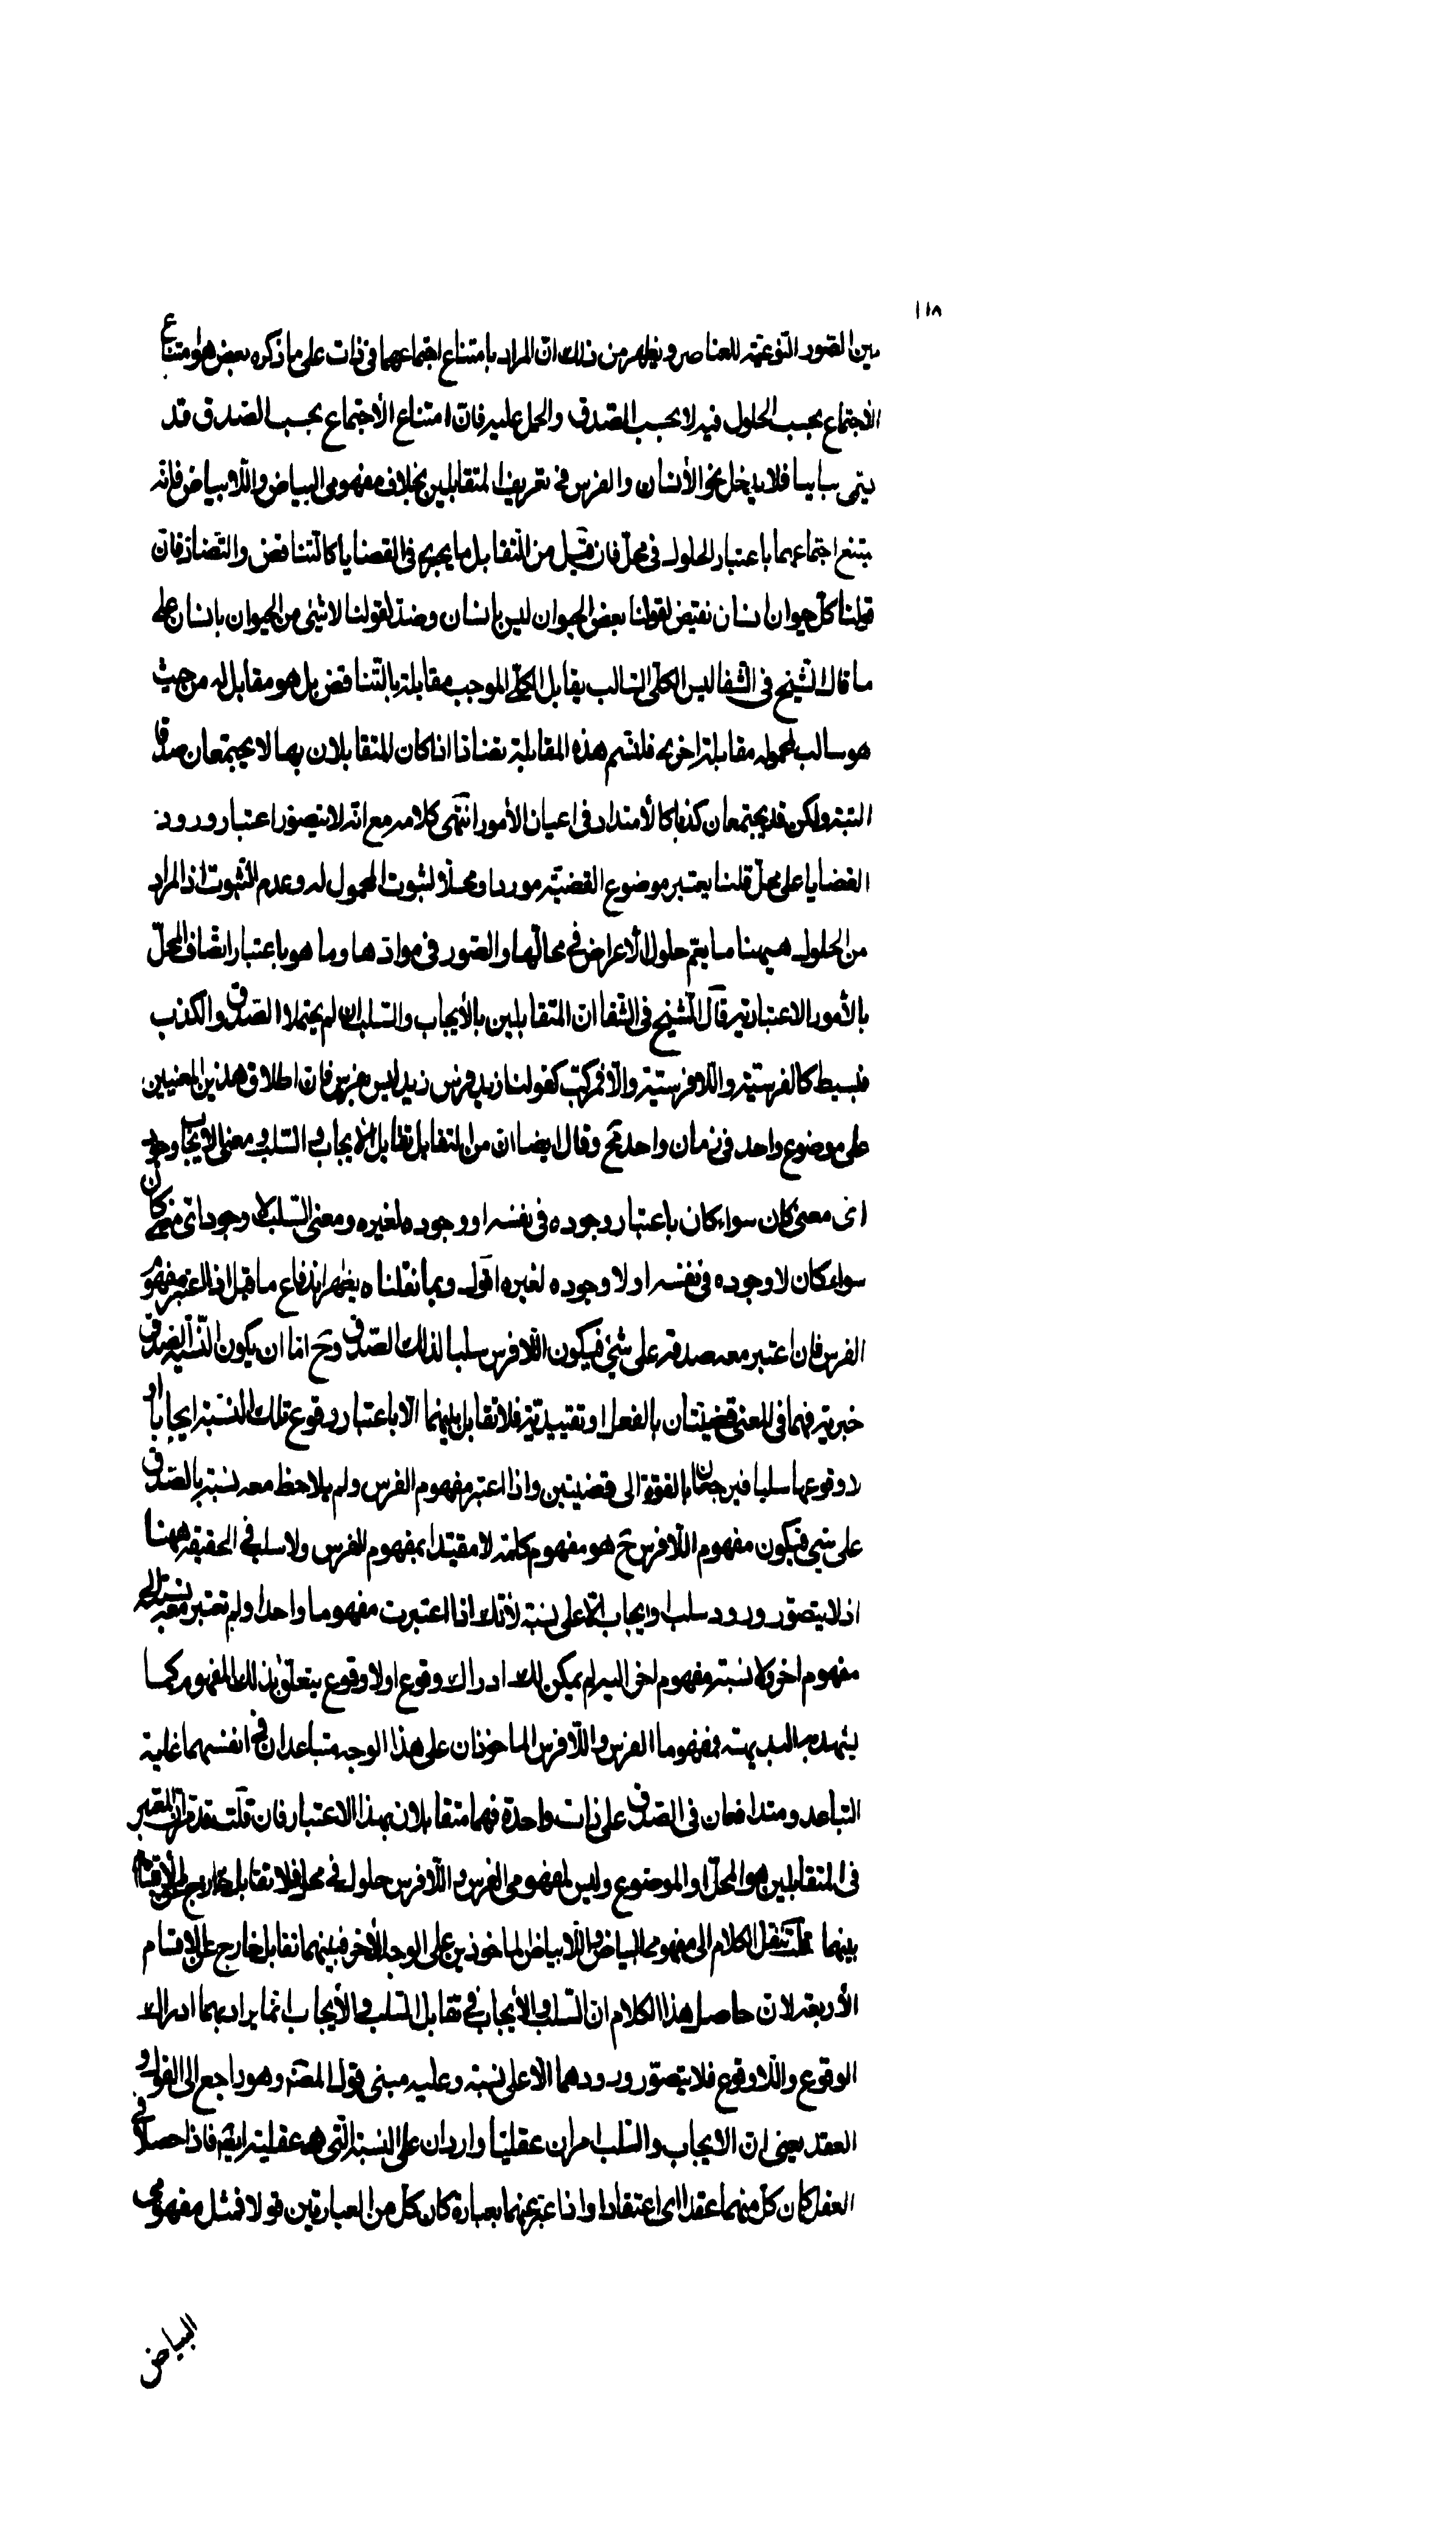 ١١٨
بين الصور النوعية للعناصر ويظهر من ذلك ان المراد بامتناع اجتماعهما فى ذات على ما ذكره بعض هو امتناع
الأجتماع بحسب الحلول فيه لا بحسب الصدق والحمل عليه فان امتناع الأجتماع بحسب الصدق قد
يسمى تباينا فلا يدخل نحو الأنسان والفرس فى تعريف المتقابلين بخلاف مفهومى البياض واللا بياض فانه
يمتنع اجتماعهما باعتبار الحلول فى محل فان قيل من التقابل ما يجرى فى القضايا كالتناقض والتضاد فان
قولنا كل حيوان انسان نقيض لقولنا بعض الحيوان ليس بانسان وضد لقولنا لا شئ من الحيوان بانسان على
ما قال الشيخ فى الشفا ليس الكلى السالب يقابل الكلى الموجب مقابلة بالتناقض بل هو مقابل له من حيث
هو سالب لمحموله مقابلة اخرى فلنسم هذه المقابلة تضادا اذا كان المتقابلان بها لا يجتمعان صدقا
البتة ولكن قد يجتمعان كذبا كالأضداد فى اعيان الأمور انتهى كلامه مع انه لا يتصور اعتبار ورود
القضايا على محل قلنا يعتبر موضوع القضية موردا ومحلا لثبوت المحمول له وعدم الثبوت اذ المراد
من الحلول هيهنا ما يعم حلول الأعراض فى محالها والصور فى موادها وما هو باعتبار اتصاف المحل
بالأمور الاعتبارية قال الشيخ فى الشفا ان المتقابلين بالأيجاب والسلب ان لم يحتملا الصدق والكذب
فبسيط كالفرسية واللافرسية والا فمركب كقولنا زيد فرس زيد ليس بفرس فان اطلاق هذين المعنيين
على موضوع واحد فى زمان واحد مح وقال ايضا ان من التقابل تقابل الايجاب والسلب ومعنى الايجاب وجود
اى معنى كان سواء كان باعتبار وجوده فى نفسه او وجوده لغيره ومعنى السلب لا وجود اى معنى كان
سواء كان لا وجوده فى نفسه او لا وجوده لغيره اقول وبما نقلناه يظهر اندفاع ما قيل اذا اعتبر مفهوم
الفرس فان اعتبر معه صدقه على شئ فيكون اللافرس سلبا لذلك الصدق وح اما ان يكون النسبة بالصدق
خبرية فهما فى المعنى قضيتان بالفعل او تقييدية فلا تقابل بينهما الا باعتبار وقوع تلك النسبة ايجابا او
لا وقوعها سلبا فيرجعان بالقوة الى قضيتين واذا اعتبر مفهوم الفرس ولم يلاحظ معه نسبة بالصدق
على شئ فيكون مفهوم اللافرس ح هو مفهوم كلمة لا مقيدا بمفهوم الفرس ولا سلب فى الحقيقة ههنا
اذ لا يتصور ورود سلب وايجاب الا على نسبة لأنك اذا اعتبرت مفهوما واحدا ولم تعتبر معه نسبة الى
مفهوم اخر ولا نسبة مفهوم اخر اليه لم يمكن لك ادراك وقوع او لا وقوع يتعلق بذلك المفهوم كما
يشهد به البديهة فمفهوما الفرس واللافرس الماخوذان على هذا الوجه متباعدان فى انفسهما غاية
التباعد ومتدافعان فى الصدق على ذات واحدة فهما متقابلان بهذا الاعتبار فان قلت قد تقرر ان المعتبر
فى المتقابلين هو المحل او الموضوع وليس لمفهومى الفرس واللافرس حلول فى محل فلا تقابل خارج عن الأقسام
بينهما قلت ننقل الكلام الى مفهومى البياض واللابياض الماخوذين على الوجه الأخر فبينهما تقابل خارج عن الاقسام
الأربعة لان حاصل هذا الكلام ان السلب والأيجاب فى تقابل السلب والأيجاب انما يراد بهما ادراك
الوقوع واللاوقوع فلا يتصور ورودهما الا على نسبة وعليه مبنى قول المصنف وهو راجع الى القول و
العقد يعنى ان الايجاب والسلب امران عقليتان واردان على النسبة التى هى عقلية ايضا فاذا حصلا فى
العقل كان كل منهما عقدا اى اعتقادا واذا عبر عنهما بعبارة كان كل من العبارتين قولا فمثل مفهومى
البياض